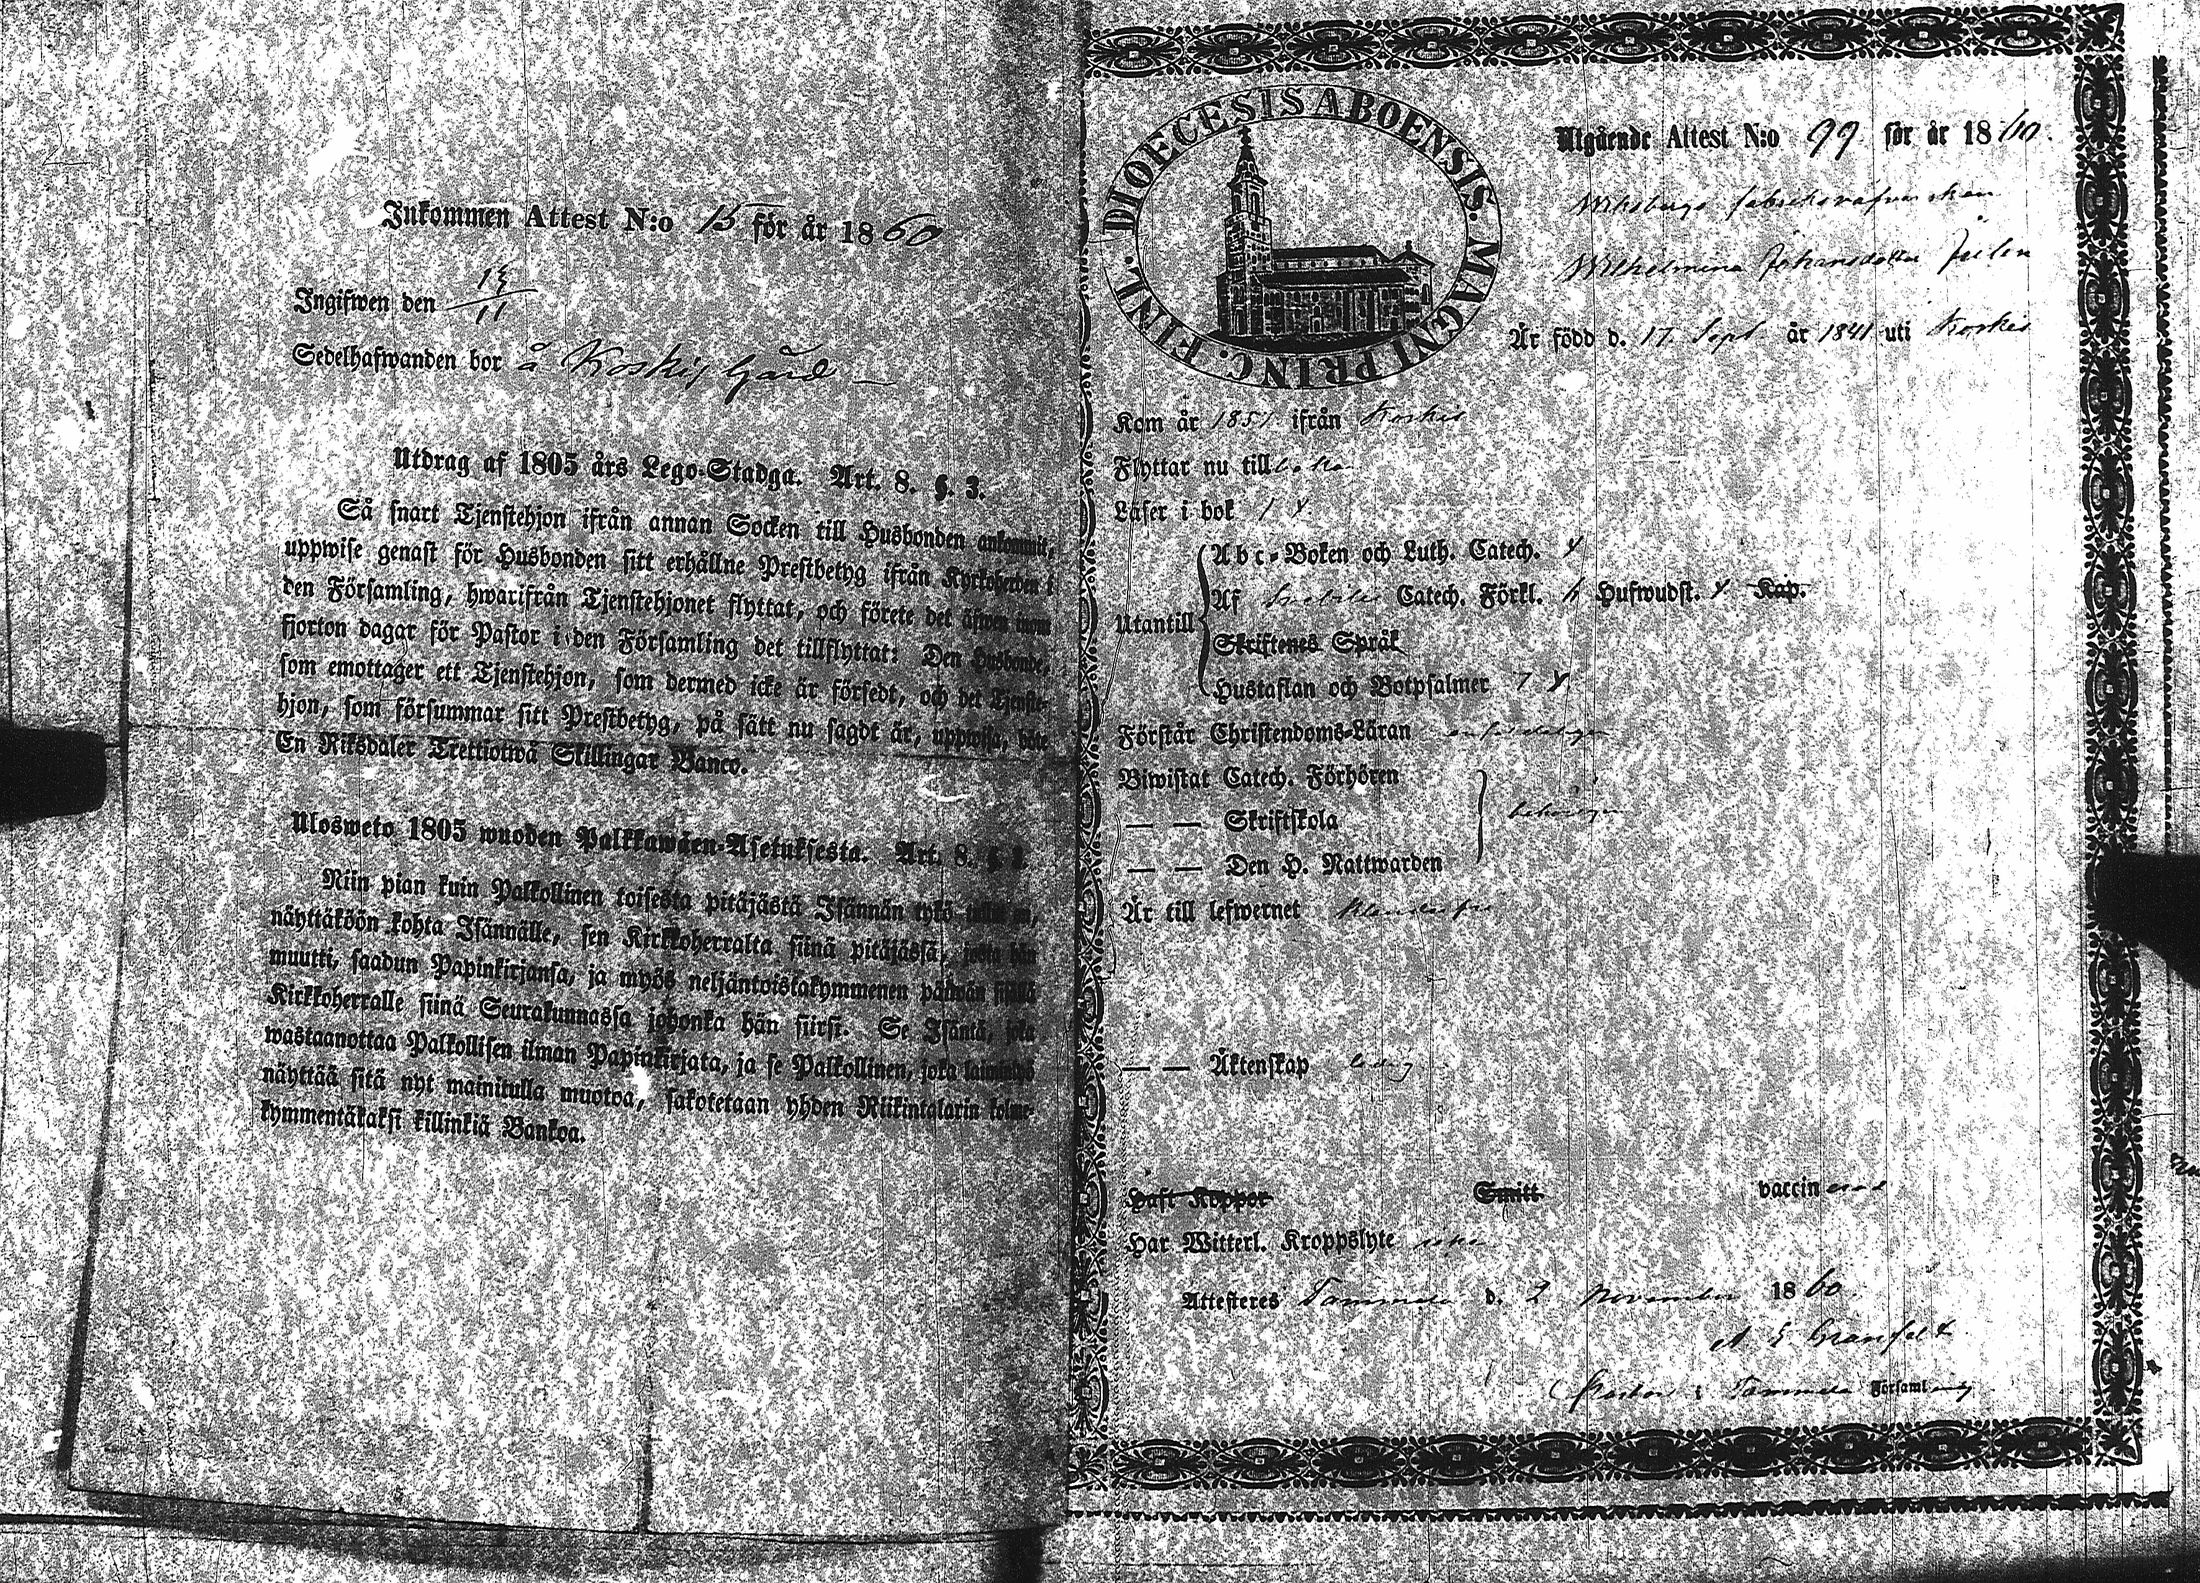 Inkommen Attest N:o 15 för år 1860
Ingifwen den 13/11
Sedelhafwanden bor å Koskis Gård
Utdrag af 1805 års Lego-Stadga. Art. 8. §. 3.
Så snart Tjenstehjon ifrån annan Socken till Husbonden ankommit,
uppwise genast för Husbonden sitt erhållne Prestbetyg ifrån Kyrkoherden i
den Församling, hwarifrån Tjenstehjonet flyttat, och förete det äfwen inom
fjorton dagar för Pastor i den Församling det tillflyttat: Den Husbonde,
som emottager ett Tjenstehjon, som dermed icke är försedt, och det Tjenste-
hjon, som försummar sitt Prestbetyg, på sätt nu sagdt är, uppwisa, böte
En Riksdaler Trettiotwå Skillingar Banco.
Ulosweto 1805 wuoden Palkkawäen-Asetuksesta. Art. 8. §. 3.
Niin pian kuin Palkollinen toisesta pitäjästä Isännän tykö tullut on,
näyttäköön kohta Isännälle, sen Kirkkoherralta siinä pitäjässä, josta hän
muutti, saadun Papinkirjansa, ja myös neljäntoistakymmenen päiwän sisällä
Kirkkoherralle siinä Seurakunnassa johonka hän siirsi. Se Isäntä, joka
wastaanottaa Palkollisen ilman Papinkirjata, ja se Palkollinen, joka laiminlyö
näyttää sitä nyt mainitulla muotoa, sakotetaan yhden Riikintalarin kolme-
kymmentäkaksi killinkiä Bankoa.
DIOECESIS ABOENSIS. MAGNI PRINC. FINL.
Utgående Attest N:o 99 för år 1860.
Wilhelmina Johansdotter
Är född d. 17 Sept år 1841 uti Koskis
Kom år 1851 ifrån Koskis
Flyttar nu till
Läser i bok
Utantill
Abc-Boken och Luth. Catech.
Af Svebilii Catech. Förkl. Hufwudst. Kap.
Skriftenes Språk
Hustaflan och Botpsalmer 7
Förstår Christendoms-Läran
Biwistat Catech. Förhören
— — Skriftskola
— — Den H. Nattwarden
Är till lefwernet
— — Äktenskap ledig
Haft Koppor Smitt vaccinerad
Har Witterl. Kroppslyte icke
Attesteres Tammela d. 2 November 1860.
A E Granfelt
Pastor i Tammela Församling